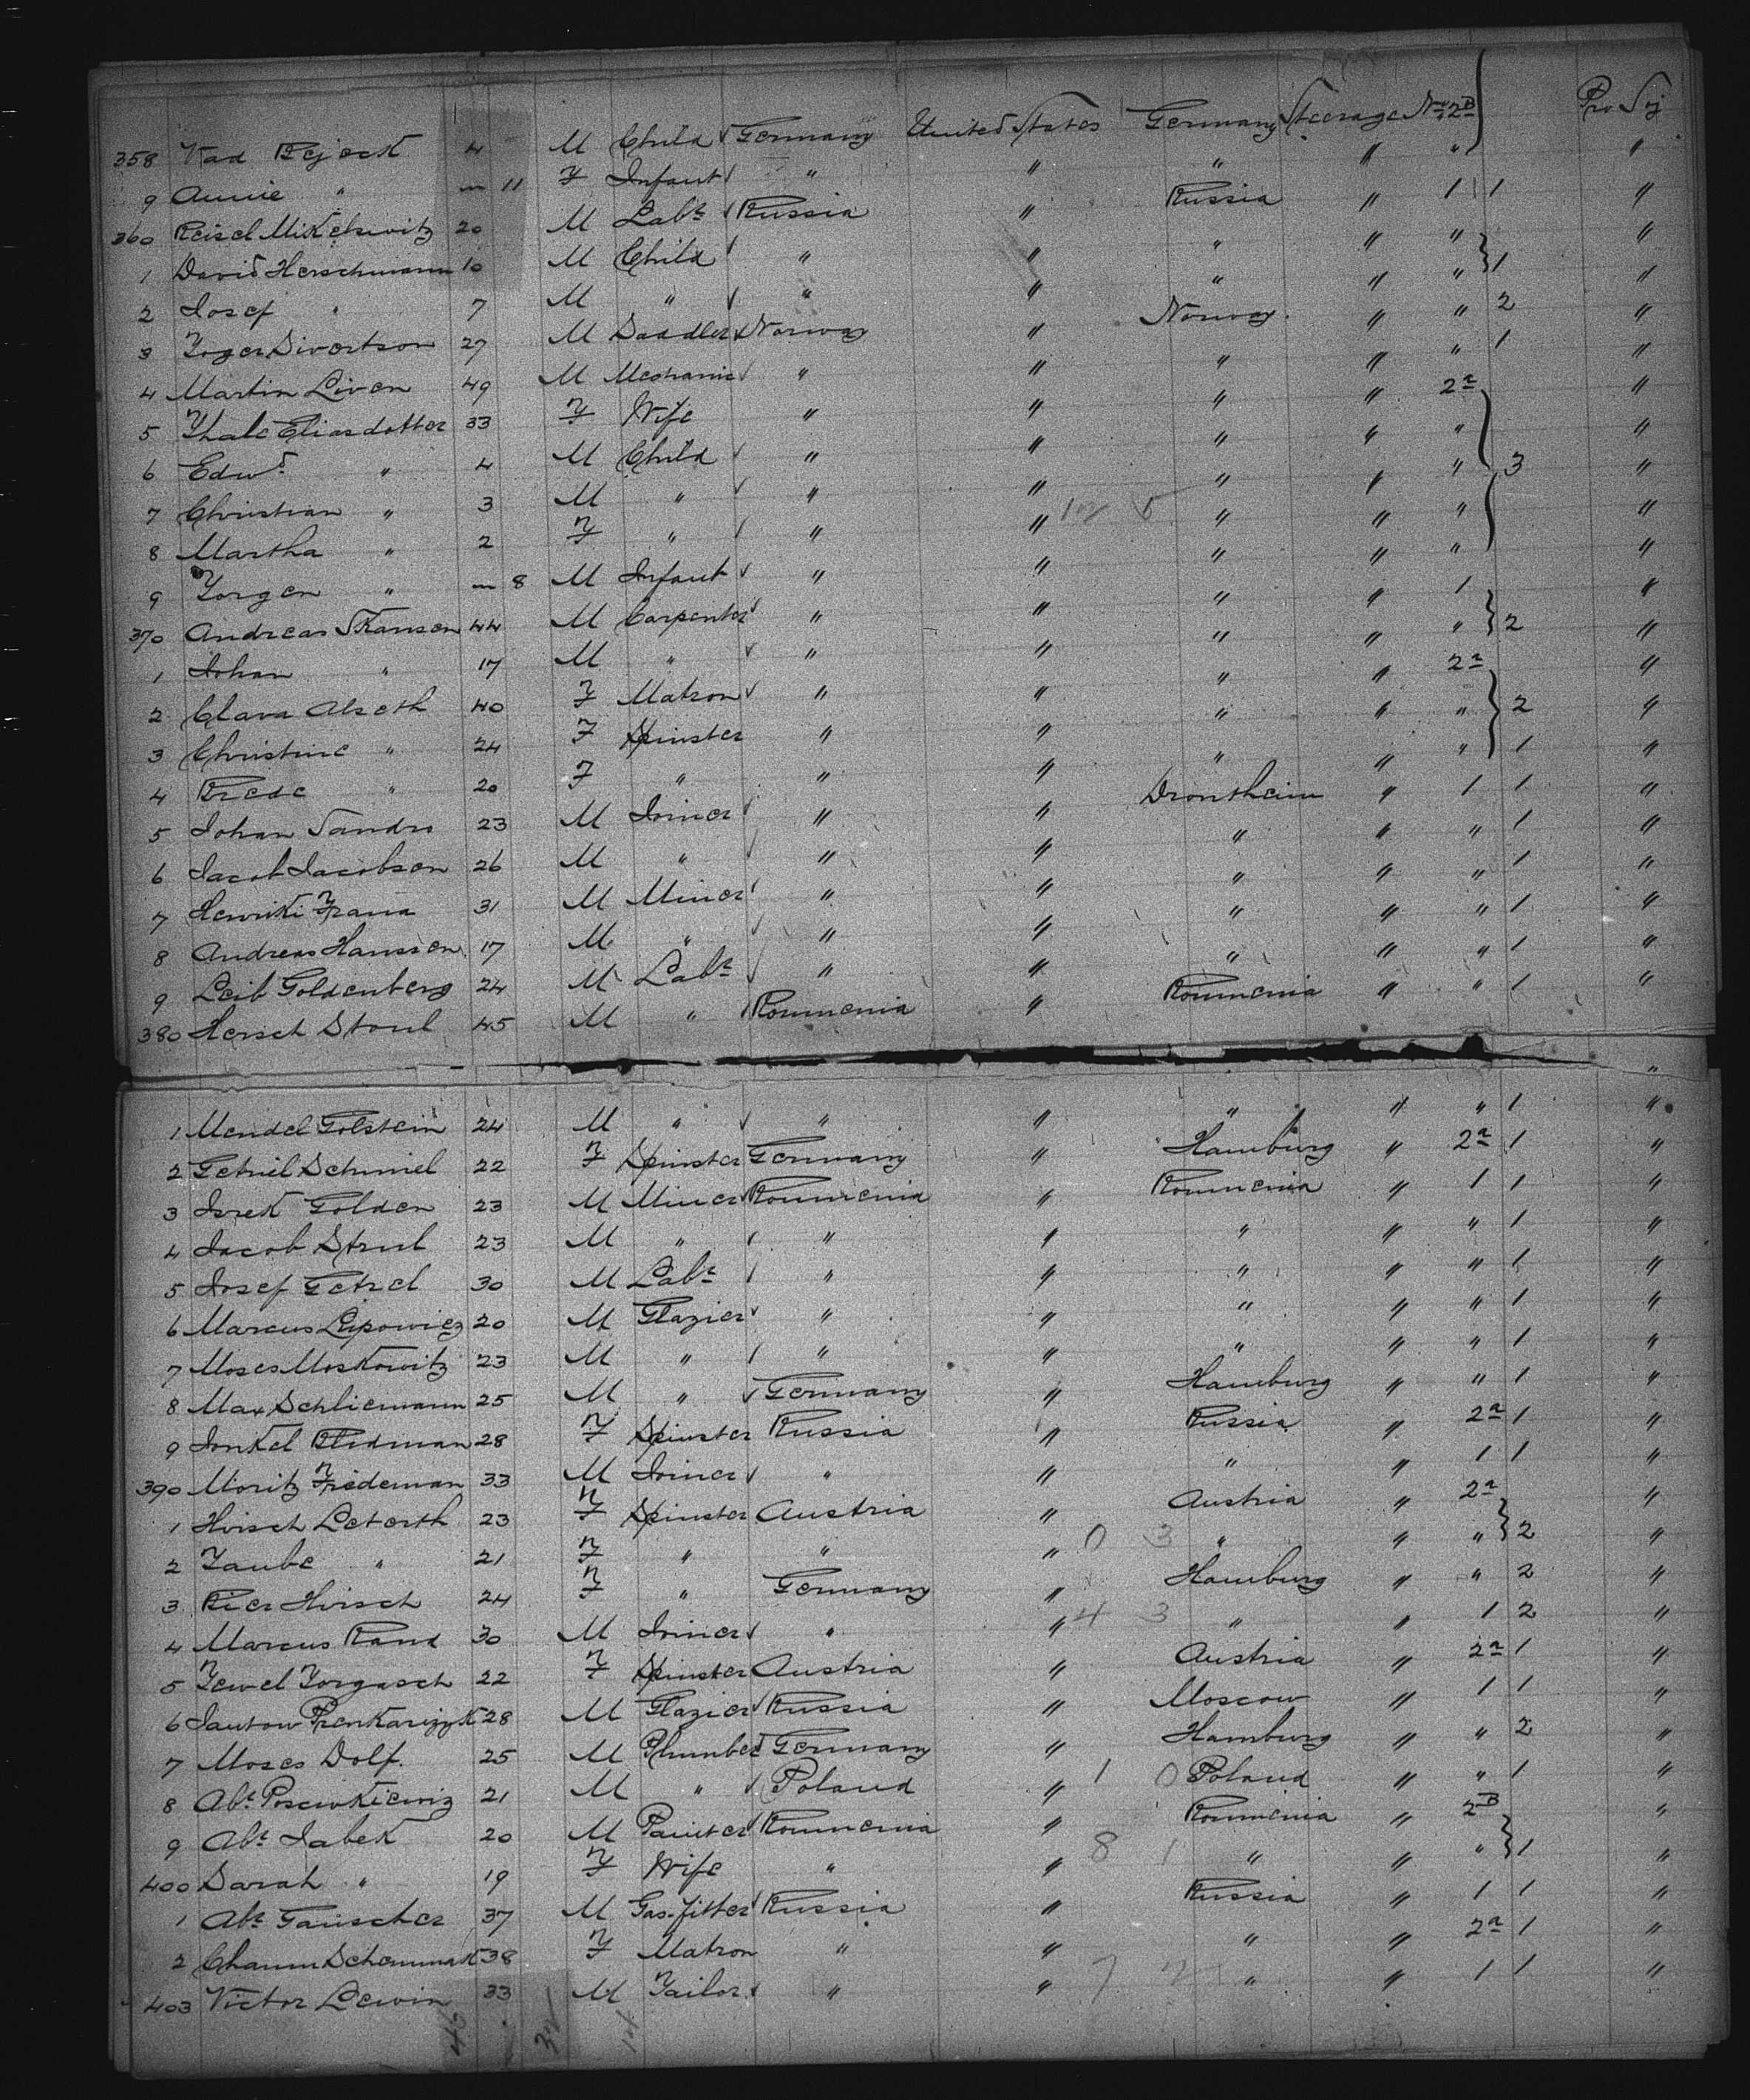 358 Kad Bejock 4 M Child ✓ Germany United States Germany Steerage No 2B Pro Soj
9 Annie " m 11 F Infant ✓ " " " " " "
360 Reisel Mikelewitz 20 M Labr ✓ Russia " Russia " 1 1 "
1 David Herschmann 10 M Child ✓ " " " " " "
2 Josef " 7 M " ✓ " " " " " 1 "
3 Torger Sivertson 27 M Saddler ✓ Norway " Norway " " 2 "
4 Martin Liven 49 M Mechanic ✓ " " " " " 1 "
5 Thale Eliasdotter 33 F Wife " " " " 2a "
6 Edwd " 4 M Child ✓ " " " " " "
7 Christian " 3 M " ✓ " " " " " 3 "
8 Martha " 2 F " ✓ " " " " " "
9 Torgen " m 8 M Infant ✓ " " " " " "
370 Andreas Skansen 44 M Carpenter ✓ " " " " 1 "
1 Johan " 17 M " ✓ " " " " " 2 "
2 Clava Alseth 40 F Matron ✓ " " " " 2a "
3 Christine " 24 F Spinster " " " " " 2 "
4 Brede " 20 F " " " " " " 1 "
5 Johan Sandrs 23 M Joiner ✓ " " Drontheim " 1 1 "
6 Jacob Jacobson 26 M " ✓ " " " " " 1 "
7 Henriki Frana 31 M Miner ✓ " " " " " 1 "
8 Andreas Hanssen 17 M " ✓ " " " " " 1 "
9 Leib Goldenberg 24 M Labr ✓ " " " " " 1 "
380 Hersch Stoul 45 M " ✓ Roumenia " Roumenia " " 1 "
1 Mendel Golstein 24 M " ✓ " " " " " 1 "
2 Getriel Schmiel 22 F Spinster Germany " Hamburg " 2a 1 "
3 Isrek Golden 23 M Miner ✓ Roumenia " Roumenia " 1 1 "
4 Jacob Strul 23 M " ✓ " " " " " 1 "
5 Josef Getzel 30 M Labr ✓ " " " " " 1 "
6 Marcus Lipowicz 20 M Glazier ✓ " " " " " 1 "
7 Moses Moskowitz 23 M " ✓ " " " " " 1 "
8 Max Schliemann 25 M " ✓ Germany " Hamburg " " 1 "
9 Jonkel Bludman 28 F Spinster Russia " Russia " 2a 1 "
390 Moritz Friedeman 33 M Joiner ✓ " " " " 1 1 "
1 Hirsch Leterth 23 F Spinster Austria " Austria " 2a "
2 Taube " 21 F " " " 0 3 " " " 2 "
3 Bier Hirsch 24 F " Germany " Hamburg " " 2 "
4 Marcus Rand 30 M Joiner ✓ " " 4 3 " " 1 2 "
5 Tewel Torgasch 22 F Spinster Austria " Austria " 2a 1 "
6 28 M Glazier ✓ Russia " Moscow " 1 1 "
7 Moses Dolf. 25 M Plumber ✓ Germany " Hamburg " " 2 "
8 Abr 21 M " ✓ Poland " 1 0 Poland " " 1 "
9 Abr Jabek 20 M Painter ✓ Roumenia " Roumenia " 2B "
400 Sarah " 19 F Wife " " 8 1 " " " 1 "
1 Abr Tauscher 37 M Gas-fitter ✓ Russia " Russia " 1 1 "
2 38 F Matron " " " " 2a 1 "
403 Victor Lewin 33 M Tailor ✓ " " 7 " " 1 1 "